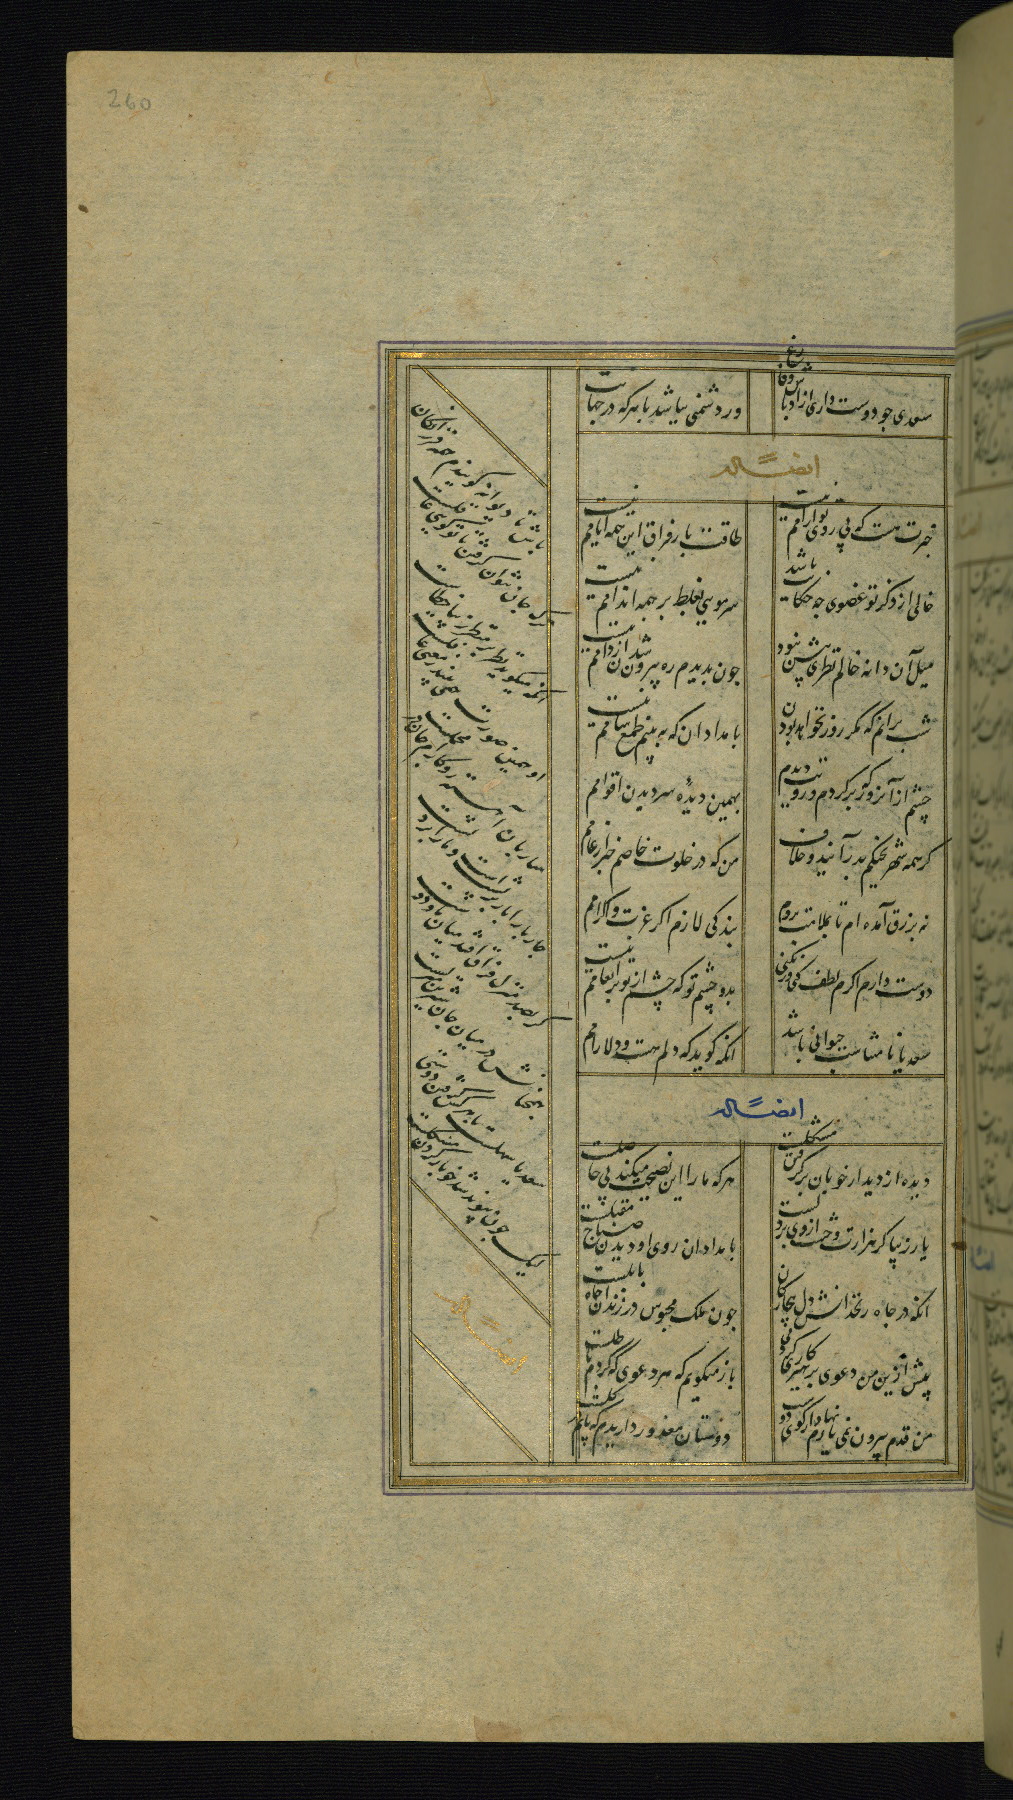 260
سعدی جو دوست داری ازاد باش و فارغ
ور دشمنی بباشد با هر که در جهانت
ایضاً له
خبرت هست که بی روی تو آرامم نیست
طاقت بار فراق این همه ایامم نیست
خالی از ذکر تو عضوی چه حکایت باشد
سر مویی بغلط بر همه اندامم نیست
میل آن دانه خالم نظری بیش نبود
جون بدیدم ره بیرون شد از دامم نیست
شب برانم که مگر روز نخواهد بودن
بامدادان که ببینم طمع شامم نیست
چشم از آنروز که برکردم و رویت دیدم
بهمین دیده سر دیدن اقوامم نیست
گر همه شهر بجنگم بدرآیند و خلاف
من که در خلوت خاصم خبر از عامم نیست
نه بزرق آمده ام تا بملامت بروم
بندگی لازم اگر عزت و اکرامم نیست
دوست دارم اگرم لطف کنی ور نکنی
بدو چشم تو که چشم از تو بر انعامم نیست
سعدیا نامتناسب حیوانی باشد
انکه گوید که دلم هست و دلارامم نیست
ایضاً له
دیده از دیدار خوبان برگرفتن مشکلست
هر که ما را این نصیحت میکند بی حاصلست
یار زیبا گر هزارت وحشت از وی بر دلست
بامدادان روی او دیدن صباح مقبلست
انکه در چاه زنخدانش دل بیچارگان
جون ملک محبوس در زندان چاه بابلست
پیش ازین من دعوی پرهیزکاری کردمی
باز میگویم که هر دعوی که کردم باطلست
من قدم بیرون نمی یارم نهاد از کوی دوست
دوستان معذور داریدم که پایم در گلست
باش تا دیوانه گویندم همه فرزانگان
ترک جان نتوان گرفتن تا تو گویی عاقلست
انکه میگوید نظر در صورت زیبا خطاست
او همین صورت همی بیند ز معنی غافلست
ساربان آهسته رو کارام جان در محملست
چارپا را بار بر پشتست و ما را بر دلست
گر بصد منزل فراق افتد میان ما و دوست
همچنانش در میان جان شیرین منزلست
سعدیا سهلست با هر کس گرفتن دوستی
لیک جون پیوند شد خو باز کردن مشکلست
ایضاً له